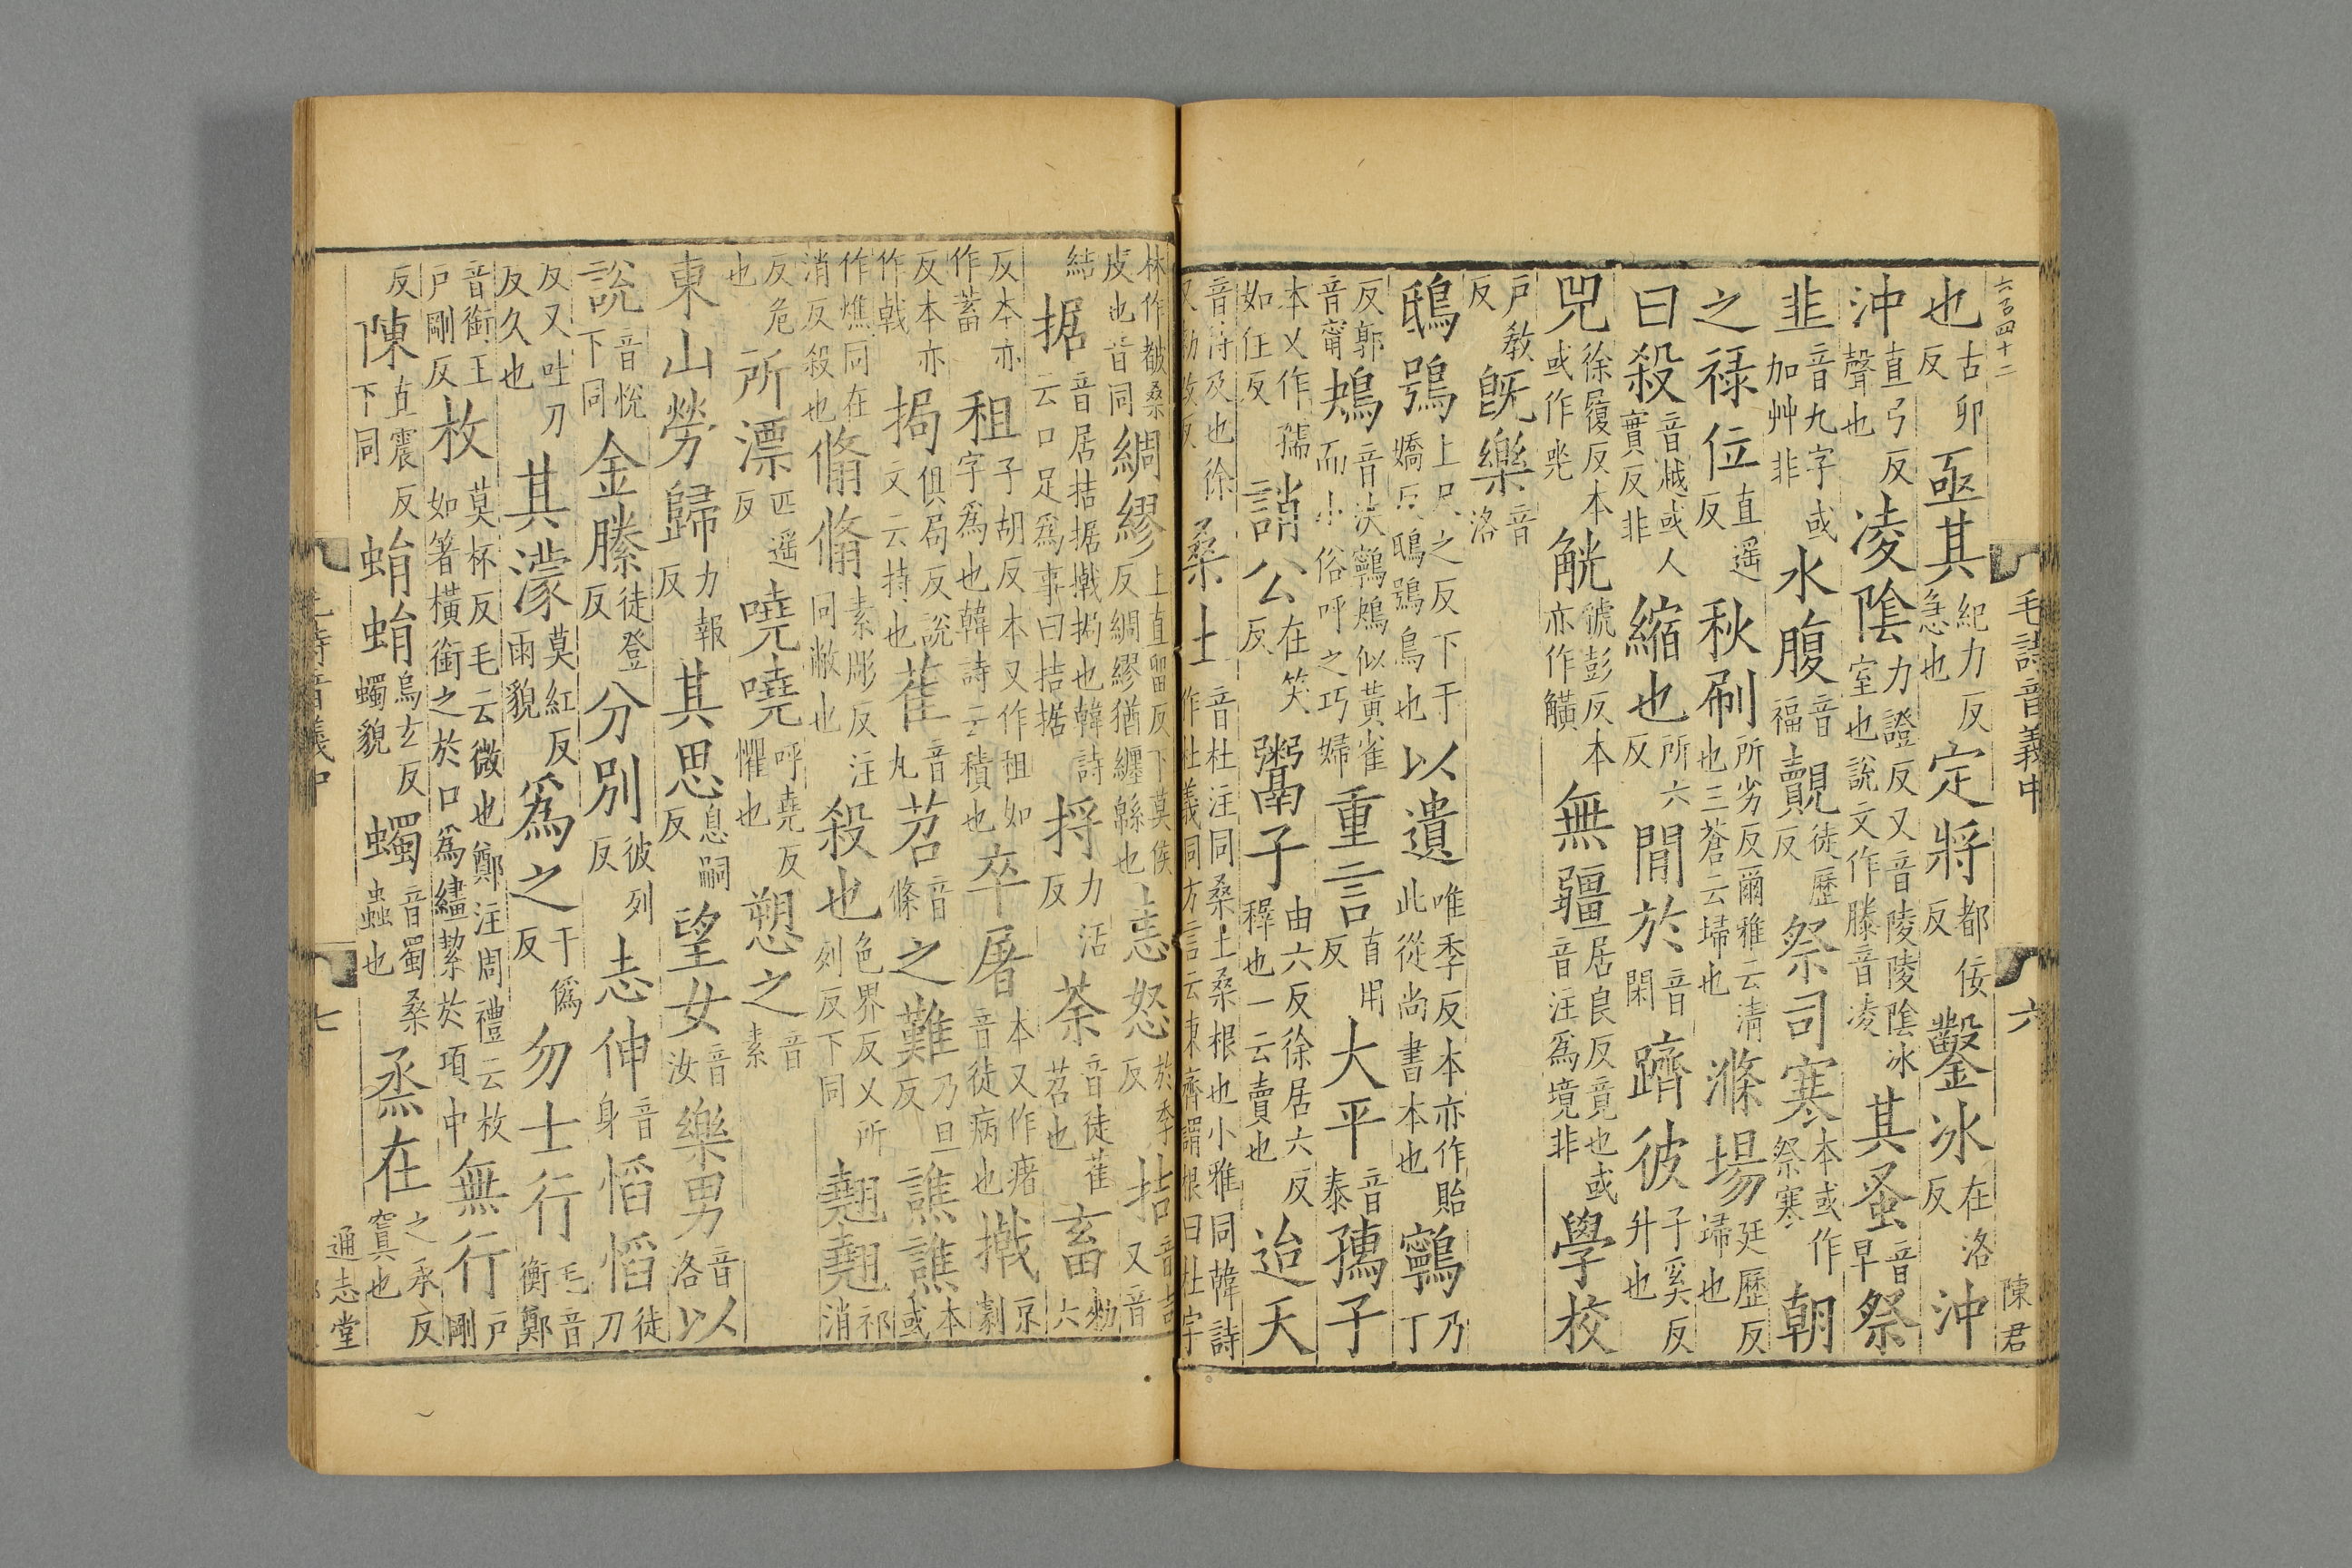 六百四十二
毛詩音義中
六
陳君
也古卯反亟其紀力反急也定將都佞反鑿冰在洛反沖
沖直弓反聲也凌陰力證反又音陵陵陰冰室也說文作滕音凌其蚤音早祭
韭音九字或加艸非水腹音福覿徒歷反祭司寒本或作祭寒朝
之祿位直遥反秋刷所劣反爾雅云清也三蒼云埽也滌場廷歷反埽也
曰殺音越或人實反非縮也所六反間於音閑躋彼子奚反升也
兕徐履反本或作㸿觥虢彭反本亦作觵無疆居良反竟也或音注為境非學校
戶教反旣樂音洛
鴟鴞上尺之反下于嬌反鴟鴞鳥也以遺唯季反本亦作貽此從尚書本也鸋乃丁
反鴂音決鸋鴂似黃雀而小俗呼之巧婦音甯重言直用反大平音泰孺子
本又作孺如住反誚公在笑反鬻子由六反徐居六反稺也一云賣也迨天
音待及也徐又勑改反桑土音杜注同桑土桑根也小雅同韓詩作杜義同方言云東齊謂根曰杜字
林作㪐桑皮也音同綢繆上直留反下莫侯反綢繆猶纏緜也恚怒於季反拮音吉又音
結据音居拮据撠挶也韓詩云口足為事曰拮据捋力活反荼音徒萑苕也畜勑六
反本亦作蓄租子胡反本又作祖如字為也韓詩云積也卒屠本又作瘏音徒病也撠京劇
反本亦作戟挶俱局反說文云持也萑音丸苕音條之難乃旦反譙譙本或
作燋同在消反殺也翛翛素彫反注同敝也殺也色界反又所列反下同翹翹祁消
反危也所漂匹遥反嘵嘵呼堯反懼也愬之音素
東山勞歸力報反其思息嗣反望女音汝樂男音洛以
說音悅下同金縢徒登反分別彼列反恚伸音身慆慆徒刀
反又吐刀反久也其濛莫紅反雨貌為之于偽反勿士行毛音衡鄭
音銜王戶剛反枚莫杯反毛云微也鄭注周禮云枚如箸橫銜之於口為繣絜於項中無行戶剛
反陳直震反下同蜎蜎烏玄反蠋貌蠋音蜀桑蟲也烝在之承反窴也
通志堂
七